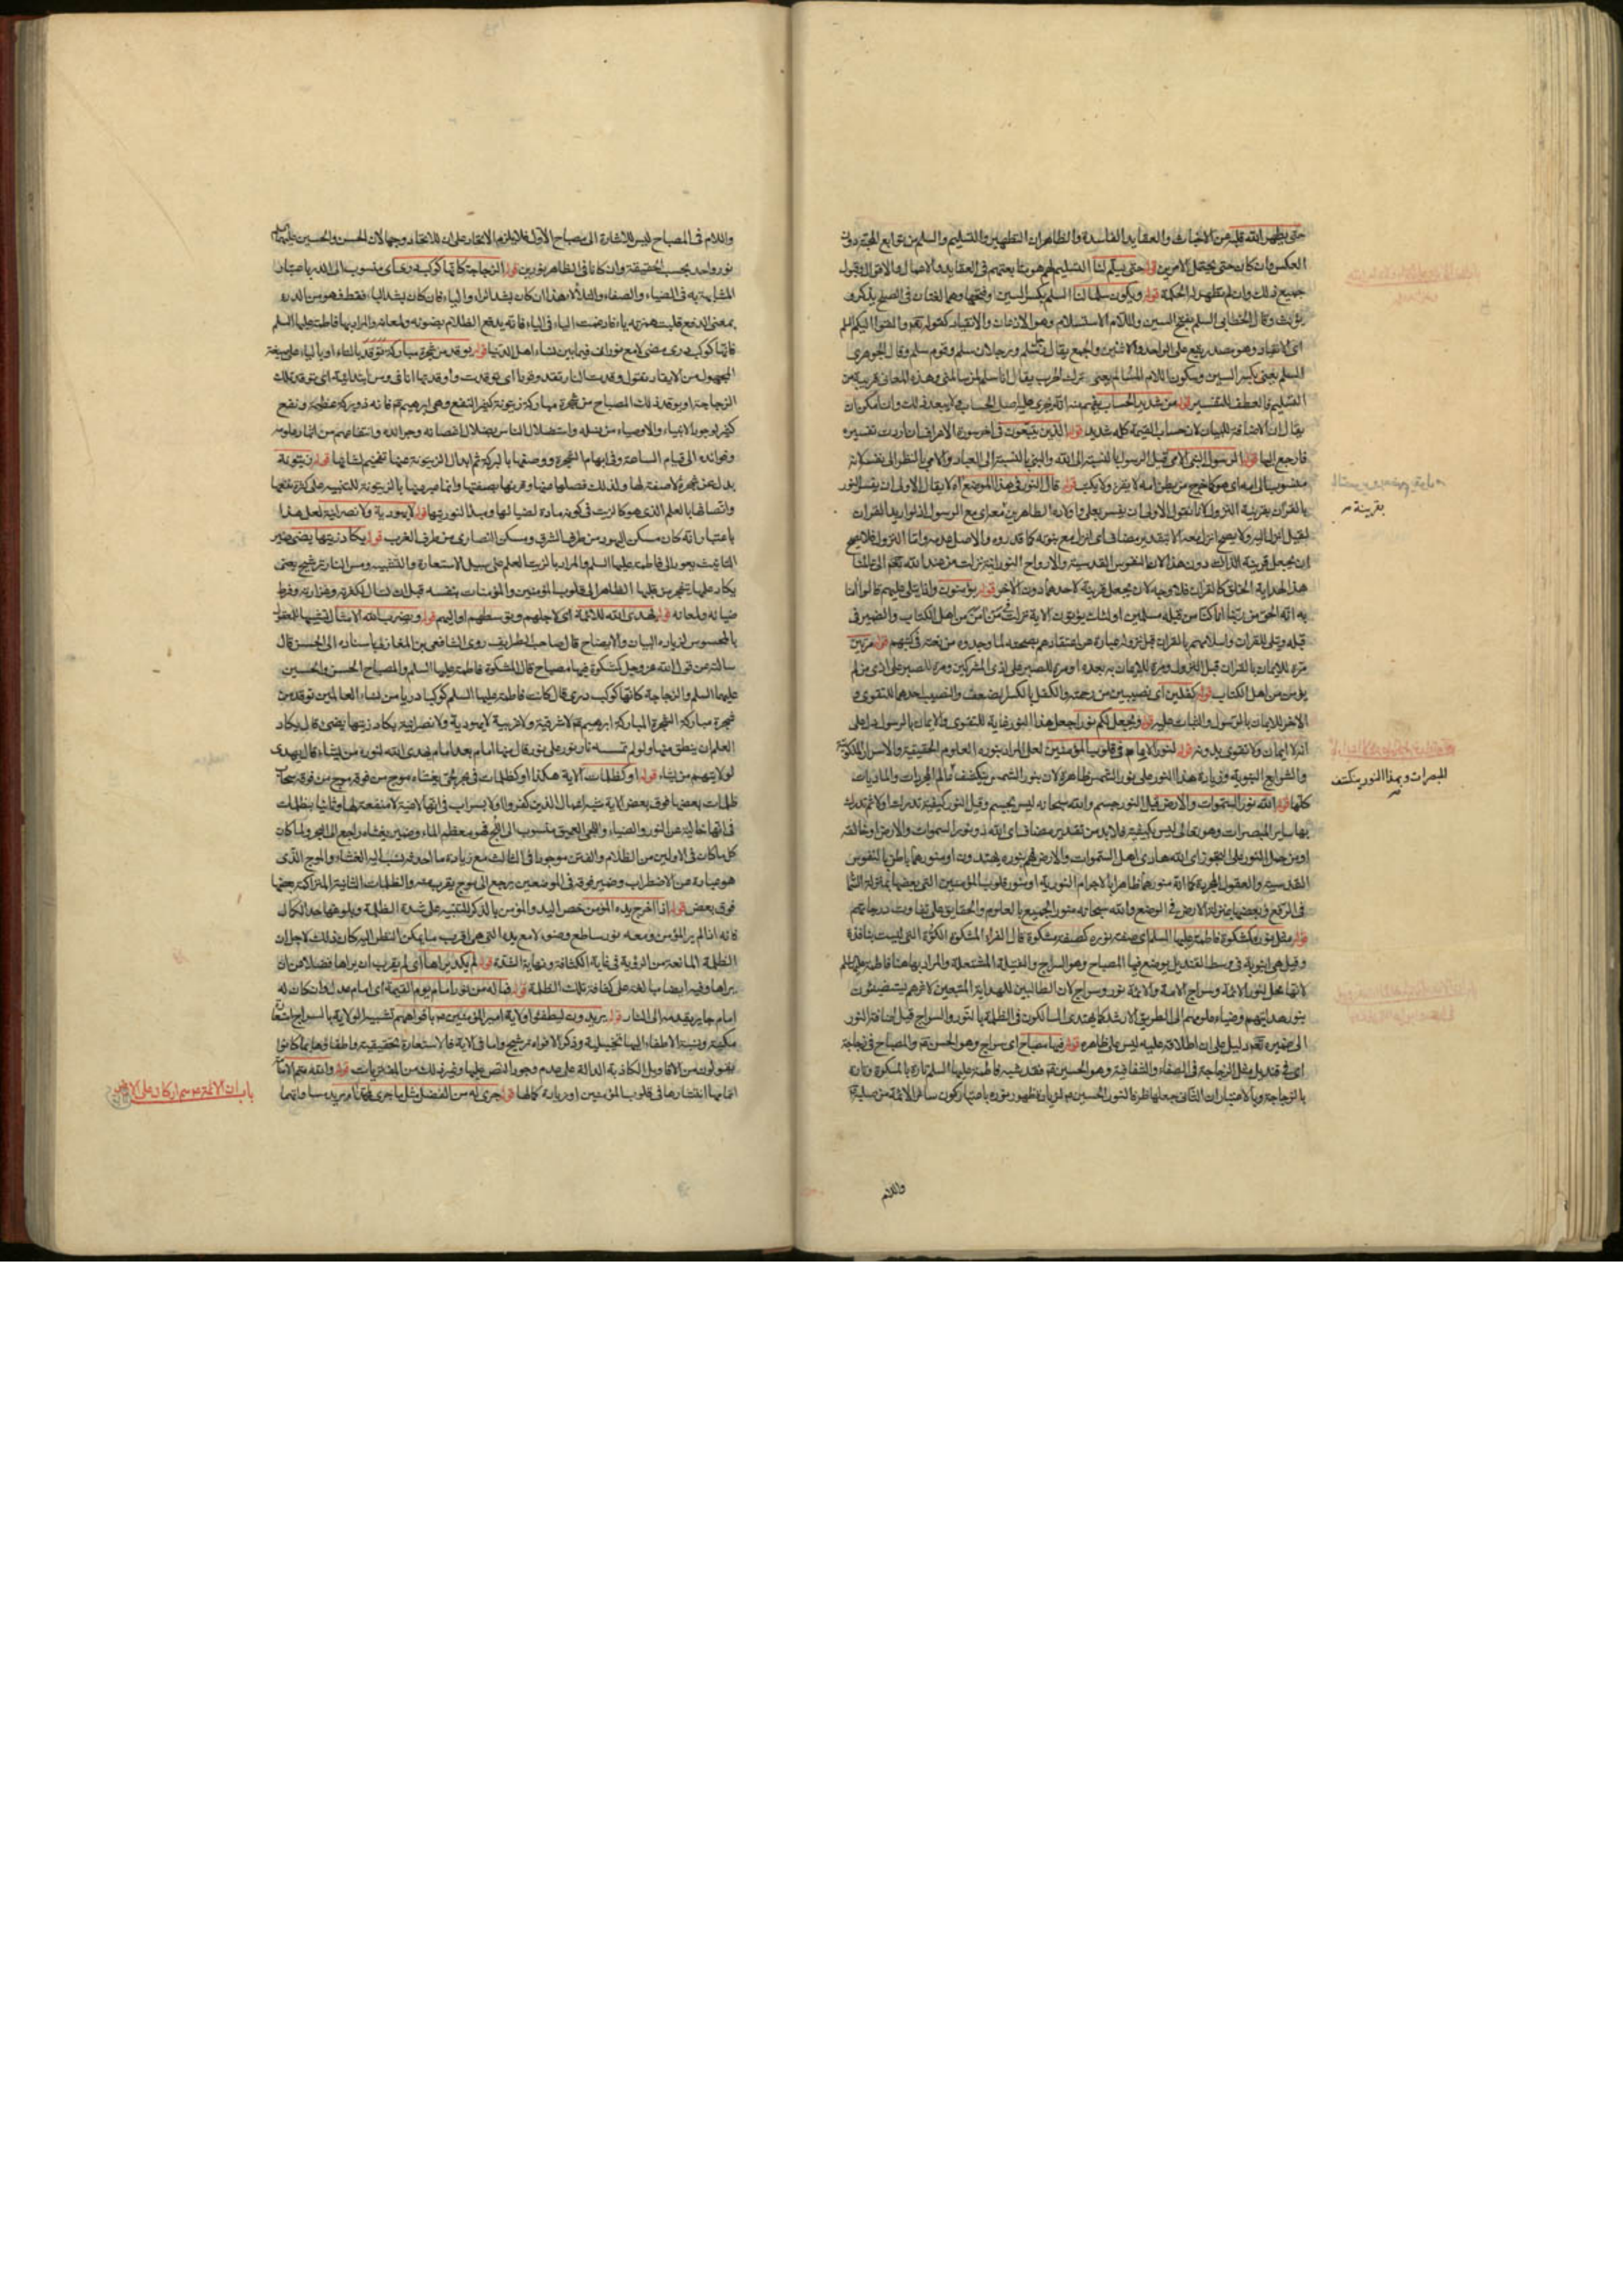 حتى يطهر الله قلبه من الاخباث والعقايد الفاسدة والظاهر ان التطهير والتسليم والسلم من توابع المحبة دون
العكس وان كان حتى يحتمل الامرين قوله حتى يسلّم لنا التسليم لهم هو متابعتهم في العقايد والاعمال والاقوال وقبول
جميع ذلك وان لم تظهر له الحكمة قوله ويكون سلما لنا السلم بكسر السين وفتحها وهما لغتان في الصلح يذكر و
يؤنث وقال الخطابي السلم بفتح السين واللام الاستسلام وهو الاذعان والانقياد كقوله تعالى والقوا اليكم السلم
اى الانقياد وهو مصدر يقع على الواحد والاثنين والجمع يقال رجل سلم ورجلان سلم وقوم سلم وقال الجوهرى
السلم يعنى بكسر السين وسكون اللام المسالم يعنى ترك الحرب يقال انا سلم لمن سالمنى وهذه المعانى قريبة من
التسليم فالعطف للتفسير قوله من شديد الحساب يفهم منه انه يجرى عليه اصل الحساب ولا يبعد ذلك وانا مكون ان
يقال ان الاضافة للبيان لان حساب القيمة كله شديد قوله الذين يتبعون في اخر سورة الاعراف ان اردت تفسيره
فارجع اليها قوله الرسول النبي الامى قيل الرسول بالنسبة الى الله والنبي بالنسبة الى العباد والامى بالنظر الى نفسه لانه
منسوب الى امه اى هو كما خرج من بطن امه لا يقرء ولا يكتب قوله قال النور في هذا الموضع اه لا يقال الاولى ان يفسر النور
بالقران بقرينة النزول لانا نقول الاولى ان يفسر بعلى واولاده الطاهرين بقرينة مع الرسول اذ لو اريد القران
لقيل انزل اليه ولا يصح انزل معه الا بتقدير مضاف اى انزل مع نبوته كما قدروه والاصل عدمه واما النزول فلا يصح
ان يجعل قرينة لذلك دون هذا لان النفوس القدسية والارواح النورانية نزلت من عند الله تعالى الى عالمنا
هذا لهداية الخلق كالقران فلا وجه لان يجعل قرينة لاحدهما دون الآخر قوله يؤمنون واذا يتلى عليهم قالوا آمنا
به انه الحق من ربنا انا كنا من قبله مسلمين اولئك يؤتون الآية نزلت في من آمن من اهل الكتاب والضمير في
قبله ويتلى للقران واسلامهم بالقران قبل نزوله عبارة عن اعتقادهم بصحته لما وجدوه من نعته في كتبهم قوله مرتين
مرة للايمان بالقران قبل النزول ومرة للايمان به بعده او مرة للصبر على اذى المشركين ومرة للصبر على اذى من لم
يؤمن من اهل الكتاب قوله كفلين اى نصيبين من رحمته والكفل بالكسر الضعف والنصيب احدهما للتقوى و
الآخر للايمان بالرسول والثبات عليه قوله ويجعل لكم نورا جعل هذا النور غاية للتقوى والايمان بالرسول يدل على
انه لا ايمان ولا تقوى بدونه قوله لنور الامام في قلوب المؤمنين لعل المراد بنوره العلوم الحقيقية والاسرار الملكوتية
والشرايع النبوية وزيادة هذا النور على نور الشمس ظاهرة لان بنور الشمس ينكشف عالم المجردات والماديات
كلها قوله الله نور السموات والارض قيل النور جسم والله سبحانه ليس بجسم وقيل النور كيفية تدرك اولا ثم تدرك
بها ساير المبصرات وهو تعالى ليس بكيفية فلا بد من تقدير مضاف اى الله ذو نور السموات والارض او خالقه
او من حمل النور على التجوز اى الله هادى اهل السموات والارض فهم بنوره يهتدون او منورهما باطنا بالنفوس
القدسية والعقول المجردة كما انه منورهما ظاهرا بالاجرام النورية او منور قلوب المؤمنين التي بعضها بمنزلة السما
في الرفع وبعضها بمنزلة الارض في الوضع والله سبحانه منور الجميع بالعلوم والحقايق على تفاوت درجاتهم
قوله مثل نوره كمشكوة فاطمة عليها السلم اى صفة نوره كصفة مشكوة قال الفراء المشكوة الكوّة التي ليست بنافذة
وقيل هى انبوبة في وسط القنديل يوضع فيها المصباح وهو السراج والفتيلة المشتعلة والمراد بها هنا فاطمة عليها السلم
لانها محل لنور الائمة وسراج الامة والائمة نور وسراج لان الطالبين للهداية المتبعين لاثرهم يستضيئون
بنور هدايتهم وضياء علومهم الى الطريق الارشد كما يهتدى السالكون في الظلمة بالنور والسراج قيل اضافة النور
الى ضميره تعالى دليل على ان اطلاقه عليه ليس على ظاهره قوله فيها مصباح اى سراج وهو الحسن ع والمصباح في زجاجة
اى في قنديل مثل الزجاجة في الصفاء والشفافية وهو الحسين ع فقد شبه فاطمة عليها السلم تارة بالمشكوة وتارة
بالزجاجة وبالاعتبار الثانى جعلها ظرفا لنور الحسين ع لزيادة ظهور نوره باعتبار كون ساير الائمة من صلبه
واللام
بقرينة
المبصرات وبهذا النور ينكشف
واللام في المصباح ليس للاشارة الى مصباح الاول فلا يلزم الاتحاد على ان للاتحاد وجها لان الحسن والحسين عليهما السلم
نور واحد بحسب الحقيقة وان كانا في الظاهر نورين قوله الزجاجة كانها كوكب درى اى منسوب الى الدر باعتبار
المشابهة به في الضياء والصفاء والتلألأ هذا ان كان بشد الراء والياء فان كان بشد الياء فقط فهو من الدرء
بمعنى الدفع قلبت همزته ياء فادغمت الياء في الياء فانه يدفع الظلام بضوئه ولمعانه والمراد بها فاطمة عليها السلم
فانها كوكب درى مضئ لامع نورانى فيما بين نساء اهل الدنيا قوله يوقد من شجرة مباركة توقد بالتاء او بالياء على صيغة
المجهول من الايقاد تقول وقدت النار تقد وقودا اى توقدت واوقدتها انا ومن ابتدائية اى توقد تلك
الزجاجة او يوقد ذلك المصباح من شجرة مباركة زيتونة كثير النفع وهى ابرهيم ع فانه ذو بركة عظيمة ونفع
كثير لوجود الانبياء والاوصياء من نسله واستضلال الناس بضلال اغصانه وجرائده وانتفاعهم من اثمار علومه
وفوائده الى قيام الساعة وفي ابهام الشجرة ووصفها بالبركة ثم ابدال الزيتونة عنها تفخيم لشانها قوله زيتونة
بدل عن شجرة لا صفة لها ولذلك فصلها عنها وقربها بصفتها وانما عبر عنها بالزيتونة للتنبيه على كثرة نفعها
واتصافها بالعلم الذى هو كالزيت في كونه مادة لضيائها ومبدأ لنوريتها قوله لا يهودية ولا نصرانية لعل هذا
باعتبار انه كان مسكن اليهود من طرف الشرق ومسكن النصارى من طرف الغرب قوله يكاد زيتها يضئ ضمير
التانيث يعود الى فاطمة عليها السلم والمراد بالزيت العلم على سبيل الاستعارة والتشبيه ومس النار ترشيح يعنى
يكاد علمها ينفجر من قلبها الطاهر الى قلوب المؤمنين والمؤمنات بنفسه قبل ان تسال لكثرته وغزارته وفرط
ضيائه ولمعانه قوله يهدى الله للائمة اى لاجلهم وتوسطهم او اليهم قوله ويضرب الله الامثال تشبيها للمعقول
بالمحسوس لزيادة البيان والايضاح قال صاحب الطرايف روى الشافعى بن المغازلى باسناده الى الحسن قال
سالته عن قول الله عز وجل كمشكوة فيها مصباح قال المشكوة فاطمة عليها السلم والمصباح الحسن والحسين
عليهما السلم والزجاجة كانها كوكب درى قال كانت فاطمة عليها السلم كوكبا دريا من نساء العالمين توقد من
شجرة مباركة الشجرة المباركة ابرهيم ع لا شرقية ولا غربية لا يهودية ولا نصرانية يكاد زيتها يضئ قال يكاد
العلم ان ينطق منها ولو لم تمسسه نار نور على نور قال منها امام بعد امام يهدى الله لنوره من يشاء قال يهدى
لولايتهم من يشاء قوله او كظلمات الآية هكذا او كظلمات في بحر لجى يغشاه موج من فوقه موج من فوقه سحاب
ظلمات بعضها فوق بعض الآية شبه اعمال الذين كفروا اولا بسراب في انها لاغية لا منفعة لها وثانيا بظلمات
في انها خالية عن النور والضياء واللجى العميق منسوب الى اللج وهو معظم الماء وضمير يغشاه راجع الى البحر ولما كان
كل ما كان في الاولين من الظلام والفتن موجودا في الثالث مع زيادة ما احدثه نسب اليه الغشاء والموج الذى
هو عبارة عن الاضطراب وضمير فوقه في الموضعين يرجع الى موج بقرب منه والظلمات الثانية المتراكمة بعضها
فوق بعض قوله اذا اخرج يده المؤمن خص اليد والمؤمن بالذكر للتنبيه على شدة الظلمة وبلوغها حد الكمال
فانه اذا لم ير المؤمن ومعه نور ساطع وضوء لامع يده التي هى اقرب ما يمكن النظر اليه كان ذلك لاجل ان
الظلمة المانعة من الرؤية في غاية الكثافة ونهاية الشدة قوله لم يكد يراها اى لم يقرب ان يراها فضلا من ان
يراها وفيه ايضا مبالغة على كثافة تلك الظلمة قوله فما له من نور امام يوم القيمة اى امام عدل وان كان له
امام جاير يقدمه الى النار قوله يريدون ليطفئوا ولاية امير المؤمنين ع بافواههم تشبيه الولاية بالسراج استعارة
مكنية ونسبة الاطفاء اليها تخييلية وذكر الافواه ترشيح واما في الاية فالاستعارة تحقيقية واطفاؤها بما كانوا
يقولون من الاقاويل الكاذبة الدالة على عدم وجود النص عليها وغير ذلك من المفتريات قوله والله متم الامامة
اتمامها انتشارها في قلوب المؤمنين او زيادة كمالها قوله جرى له من الفضل مثل ما جرى لمحمد ص يريد مساواتهما
باب ان الائمة ع هم اركان على الارض